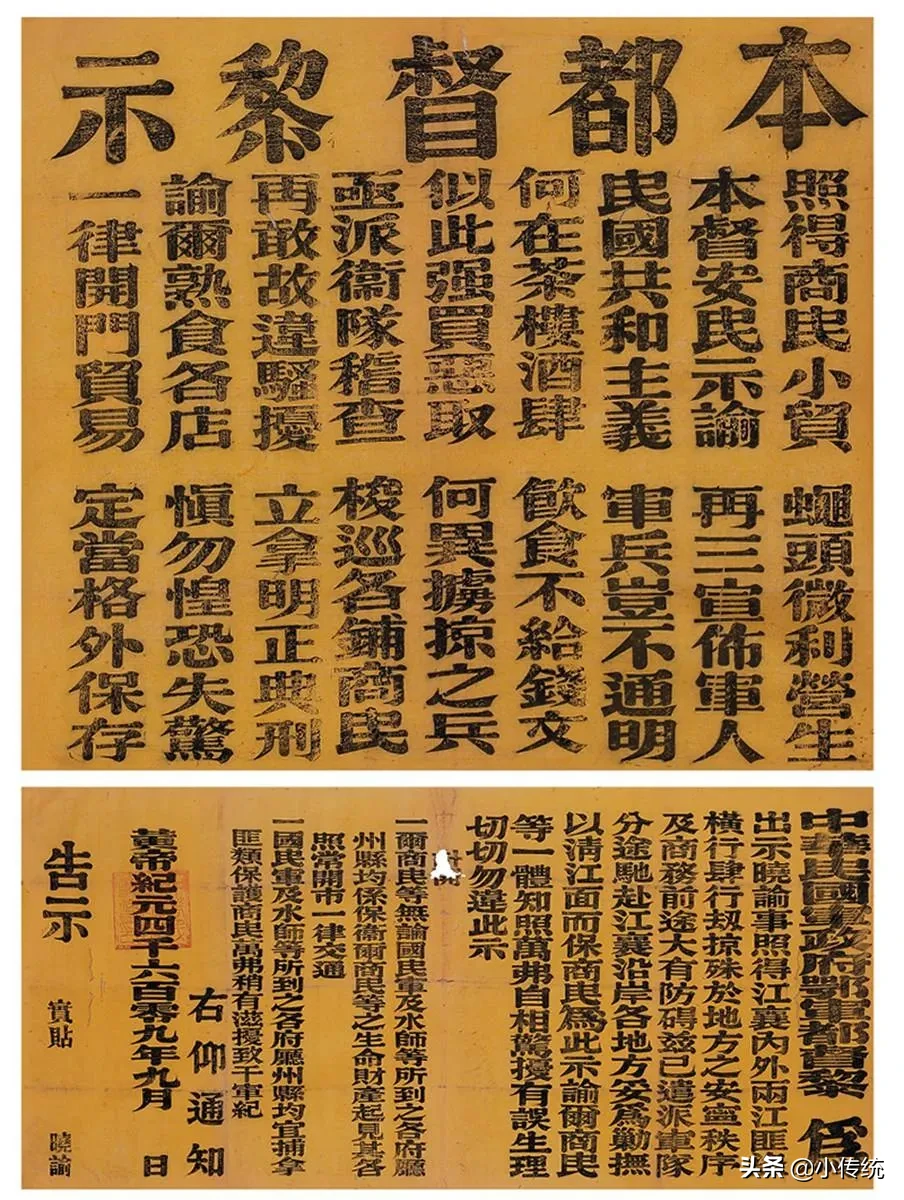 本都督黎示
照得商民小貿 蠅頭微利營生
本督安民示諭 再三宣佈軍人
民國共和主義 軍兵豈不通明
何在茶樓酒肆 飲食不給錢文
似此强買惡取 何異擄掠之兵
亟派衞隊稽查 梭巡各鋪商民
再敢故違騷擾 立拿明正典刑
諭爾熟食各店 慎勿惶恐失驚
一律開門貿易 定當格外保存
中華民國軍政府鄂軍都督黎 爲
出示曉諭事照得江襄內外兩江匪
橫行肆行刼掠殊於地方之安寧秩序
及商務前途大有防碍兹已遣派軍隊
分途馳赴江襄沿岸各地方妥爲勦撫
以清江面而保商民爲此示諭爾商民
等一體知照萬弗自相驚擾有誤生理
切切勿違此示
開
一爾商民等無論國民軍及水師等所到之各府廳
州縣均係保衞爾商民等之生命財產起見其各
照常開市一律交通
一國民軍及水師等所到之各府廳州縣均宜捕拿
匪類保護商民萬弗稍有滋擾致干軍紀
右仰通知
黃帝紀元四千六百零九年九月 日
告示 實貼 曉諭
头条 @小传统